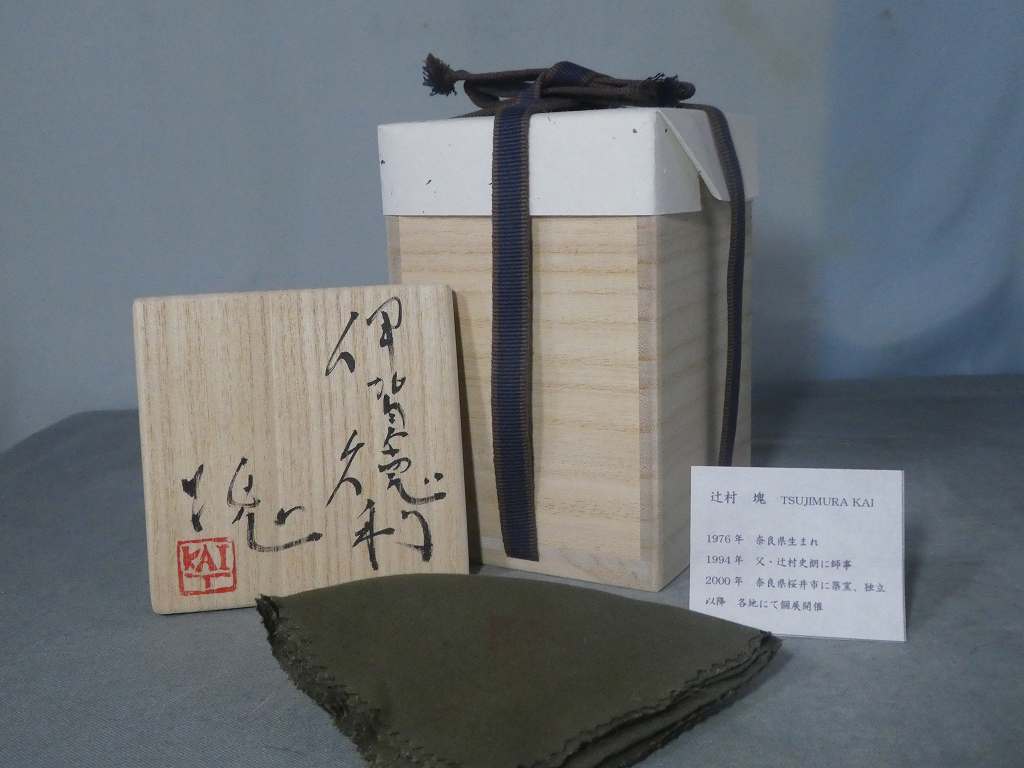 伊賀徳利
塊
KAI
T
辻村 塊 TSUJIMURA KAI
1976年 奈良県生まれ
1994年 父・辻村史朗に師事
2000年 奈良県桜井市に築窯、独立
以降 各地にて個展開催